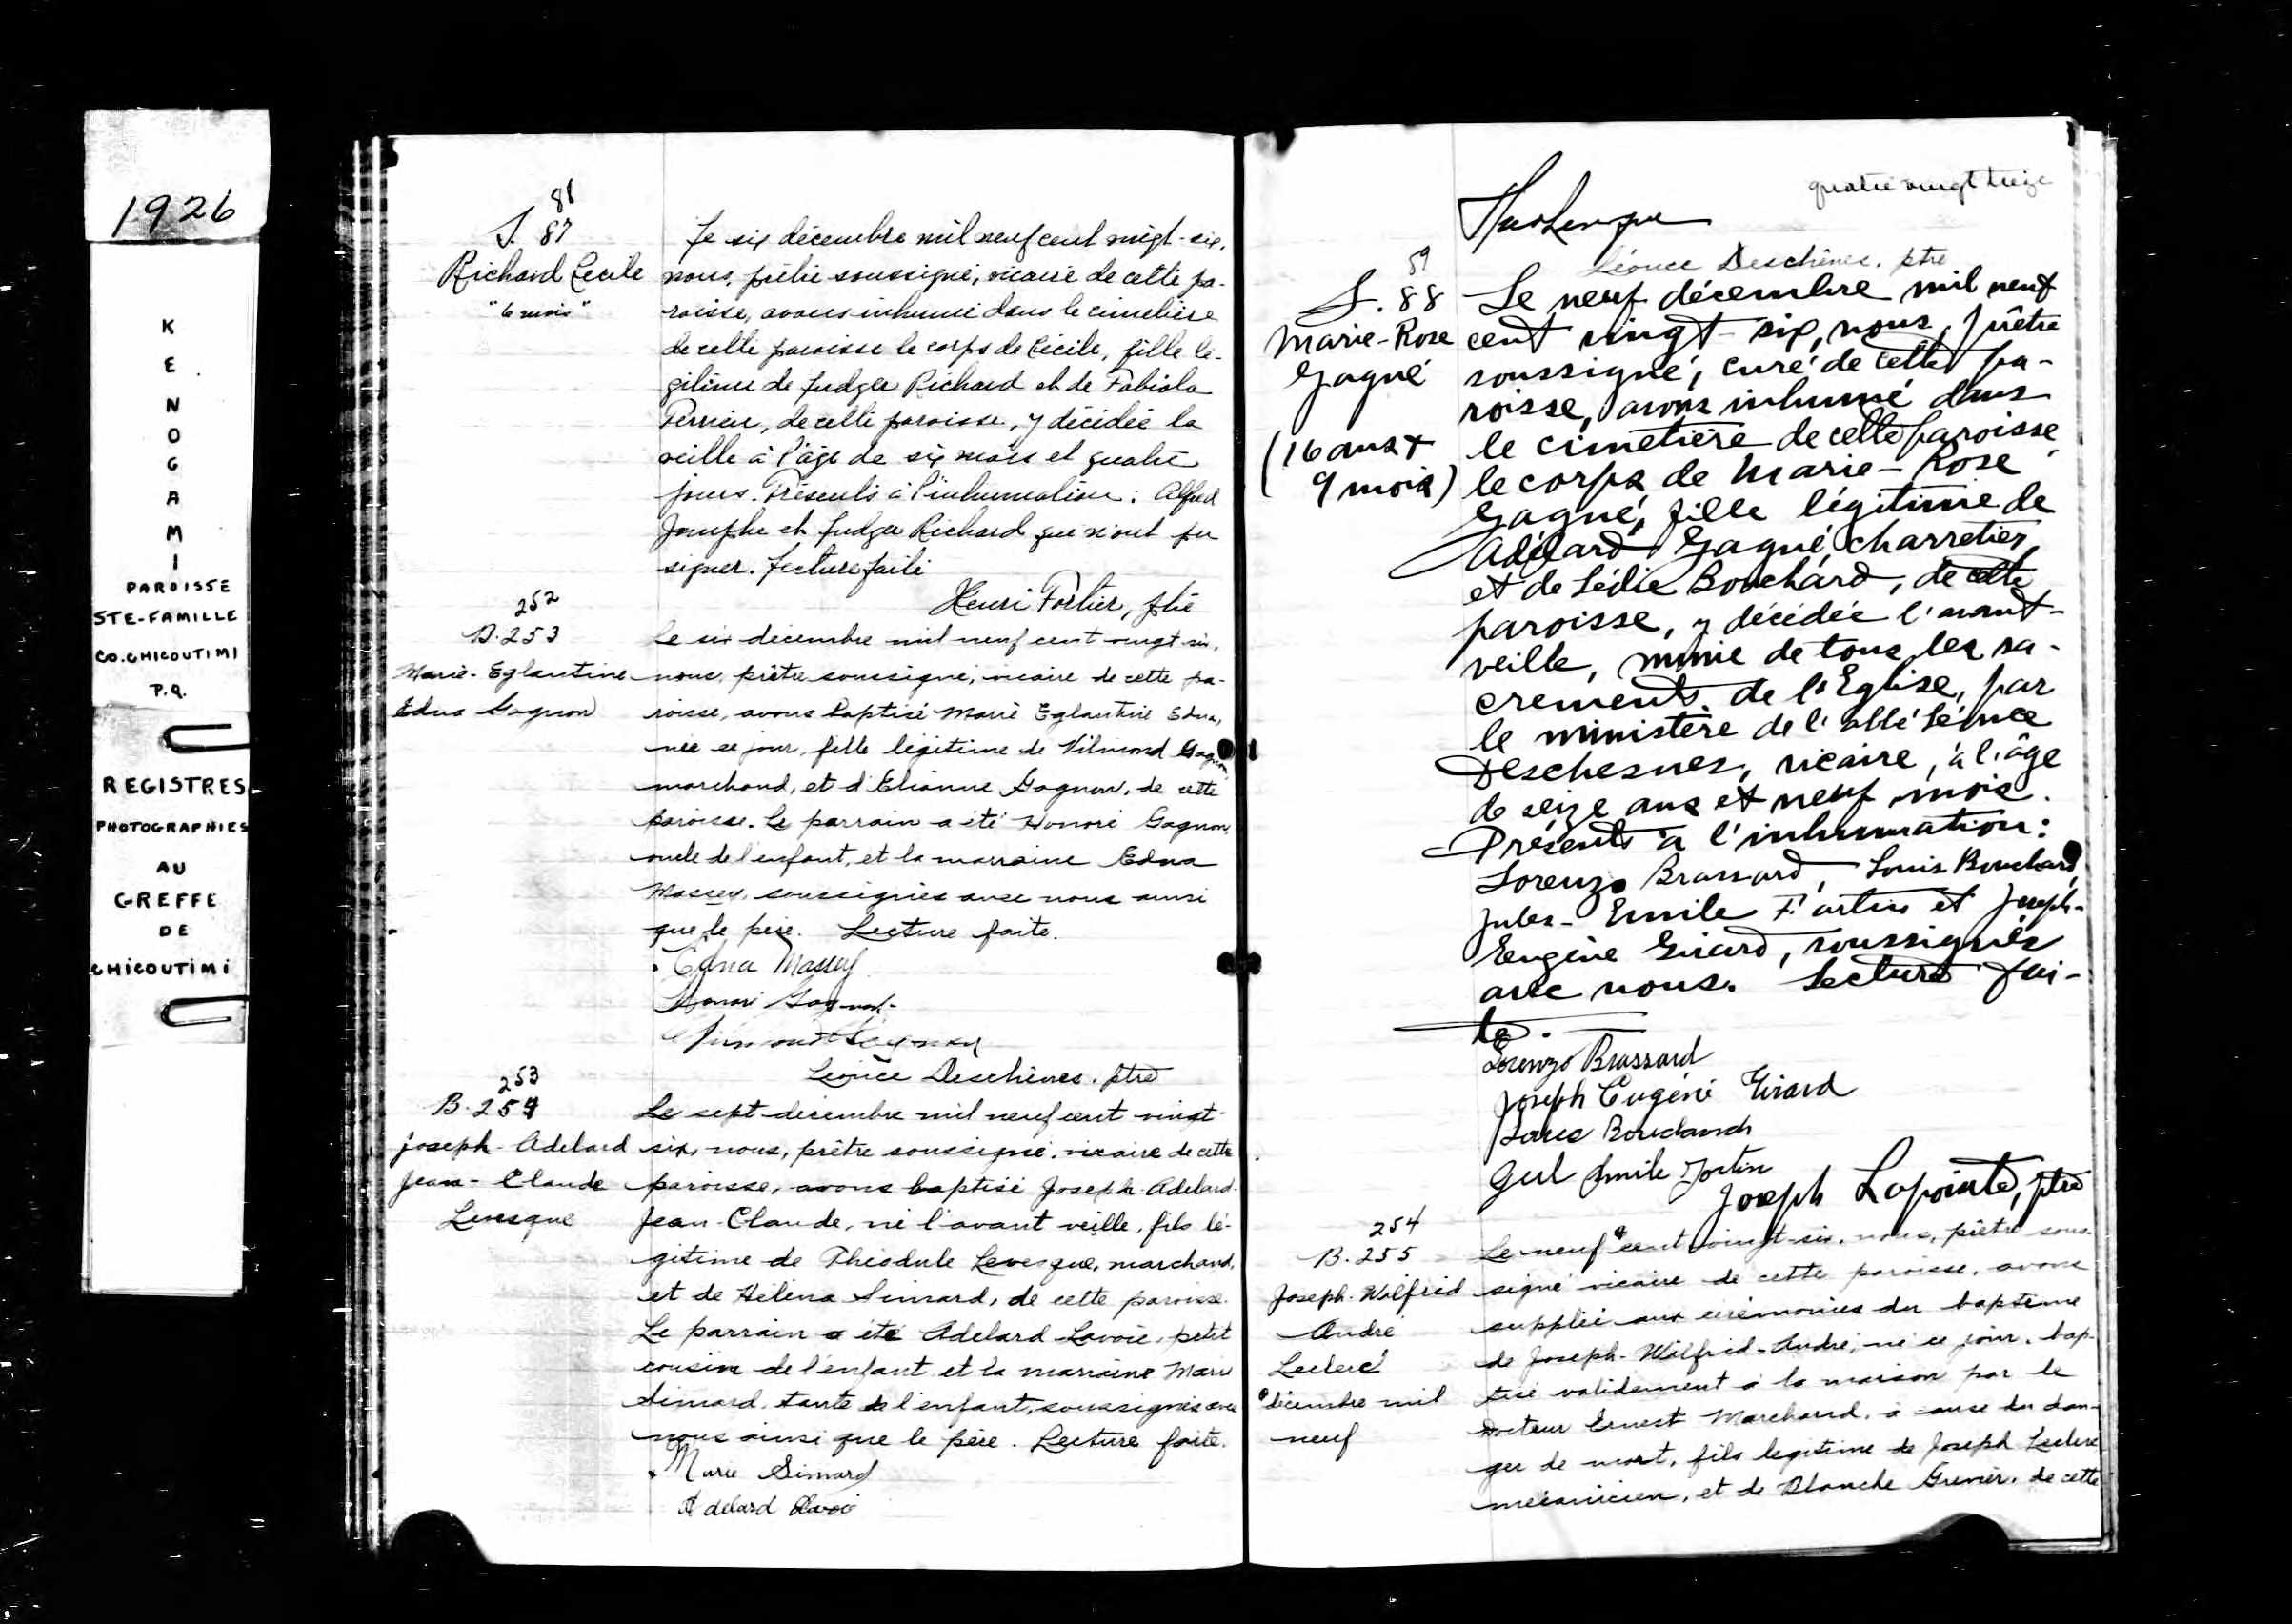 1926
K
E
N
O
G
A
M
I
PAROISSE
STE-FAMILLE
CO.CHICOUTIMI
P.Q.
REGISTRES
PHOTOGRAPHIES
AU
GREFFE
DE
CHICOUTIMI
S. 87
Richard Cécile
"6 mois"
Le six décembre mil neuf cent vingt-six,
nous, prêtre soussigné, vicaire de cette pa-
roisse, avons inhumé dans le cimetière
de cette paroisse le corps de Cécile, fille lé-
gitime de Judger Richard et de Fabiola
Perrier, de cette paroisse, y décédée la
veille à l'âge de six mois et quatre
jours. Présents à l'inhumation: Alfred
et Judger Richard qui n'ont pu
signer. Lecture faite
Henri Fortier, ptre
252
B. 253
Marie-Eglantine
Edna Gagnon
Le six décembre mil neuf cent vingt-six,
nous, prêtre soussigné, vicaire de cette pa-
roisse, avons baptisé Marie Eglantine Edna,
née ce jour, fille légitime de Vilmond Gagnon
marchand, et d'Elianne Gagnon, de cette
paroisse. Le parrain a été Honoré Gagnon,
oncle de l'enfant, et la marraine Edna
Massey, soussignés avec nous ainsi
que le père. Lecture faite.
Edna Massey
Honoré Gagnon
Léonce Deschênes, ptre
253
B. 254
Joseph-Adelard
Jean-Claude
Levesque
Le sept décembre mil neuf cent vingt-
six, nous, prêtre soussigné, vicaire de cette
paroisse, avons baptisé Joseph-Adelard-
Jean-Claude, né l'avant veille, fils lé-
gitime de Théodule Levesque, marchand,
et de Hélena Simard, de cette paroisse.
Le parrain a été Adelard Lavoie, petit
cousin de l'enfant et la marraine Marie
Simard, tante de l'enfant, soussignés avec
nous ainsi que le père. Lecture faite.
Marie Simard
Adelard Lavoie
quatre vingt treize
Léonce Deschênes, ptre
S. 88
Marie-Rose
Gagné
(16 ans +
9 mois)
Le neuf décembre mil neuf
cent vingt-six, nous, prêtre
soussigné, curé de cette pa-
roisse, avons inhumé dans
le cimetière de cette paroisse,
le corps de Marie-Rose
Gagné, fille légitime de
Adélard Gagné, charretier,
et de Lédie Bouchard, de cette
paroisse, y décédée l'avant-
veille, munie de tous les sa-
crements de l'Eglise, par
le ministère de l'abbé Léonce
Deschesnes, vicaire, à l'âge
de seize ans et neuf mois.
Présents à l'inhumation:
Lorenzo Brassard, Louis Bouchard,
Jules-Emile Fortin et Joseph-
Eugène Girard, soussignés
avec nous. Lecture fai-
te.
Lorenzo Brassard
Joseph Eugène Girard
Emile Fortin
Joseph Lapointe, ptre
254
B. 255
Joseph-Wilfrid
André
Leclerc
décembre mil
neuf
Le neuf cent vingt-six, nous, prêtre sous-
signé vicaire de cette paroisse, avons
suppléé aux cérémonies du baptême
de Joseph-Wilfrid-André, né ce jour, bap-
tisé validement à la maison par le
Docteur Ernest Marchand, à cause du dan-
ger de mort, fils légitime de Joseph Leclerc
mécanicien, et de Blanche Grenier, de cette